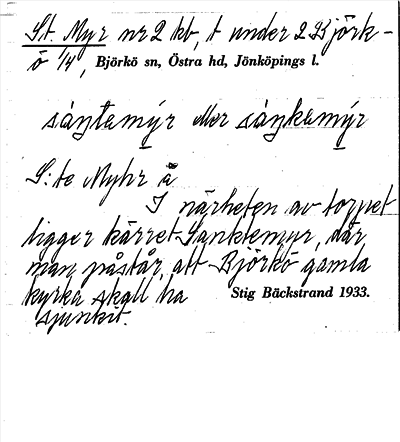 St. Myr nr 2 kb, t under 2 Björk-
ö 1/4, Björkö sn, Östra hd, Jönköpings l.
sáŋtemýr eller sáŋkemýr
S:te Myhr ä
I närheten av torpet
ligger kärret Sanktemyr, där
man påstår, att Björkö gamla
kyrka skall ha
sjunkit.
Stig Bäckstrand 1933.